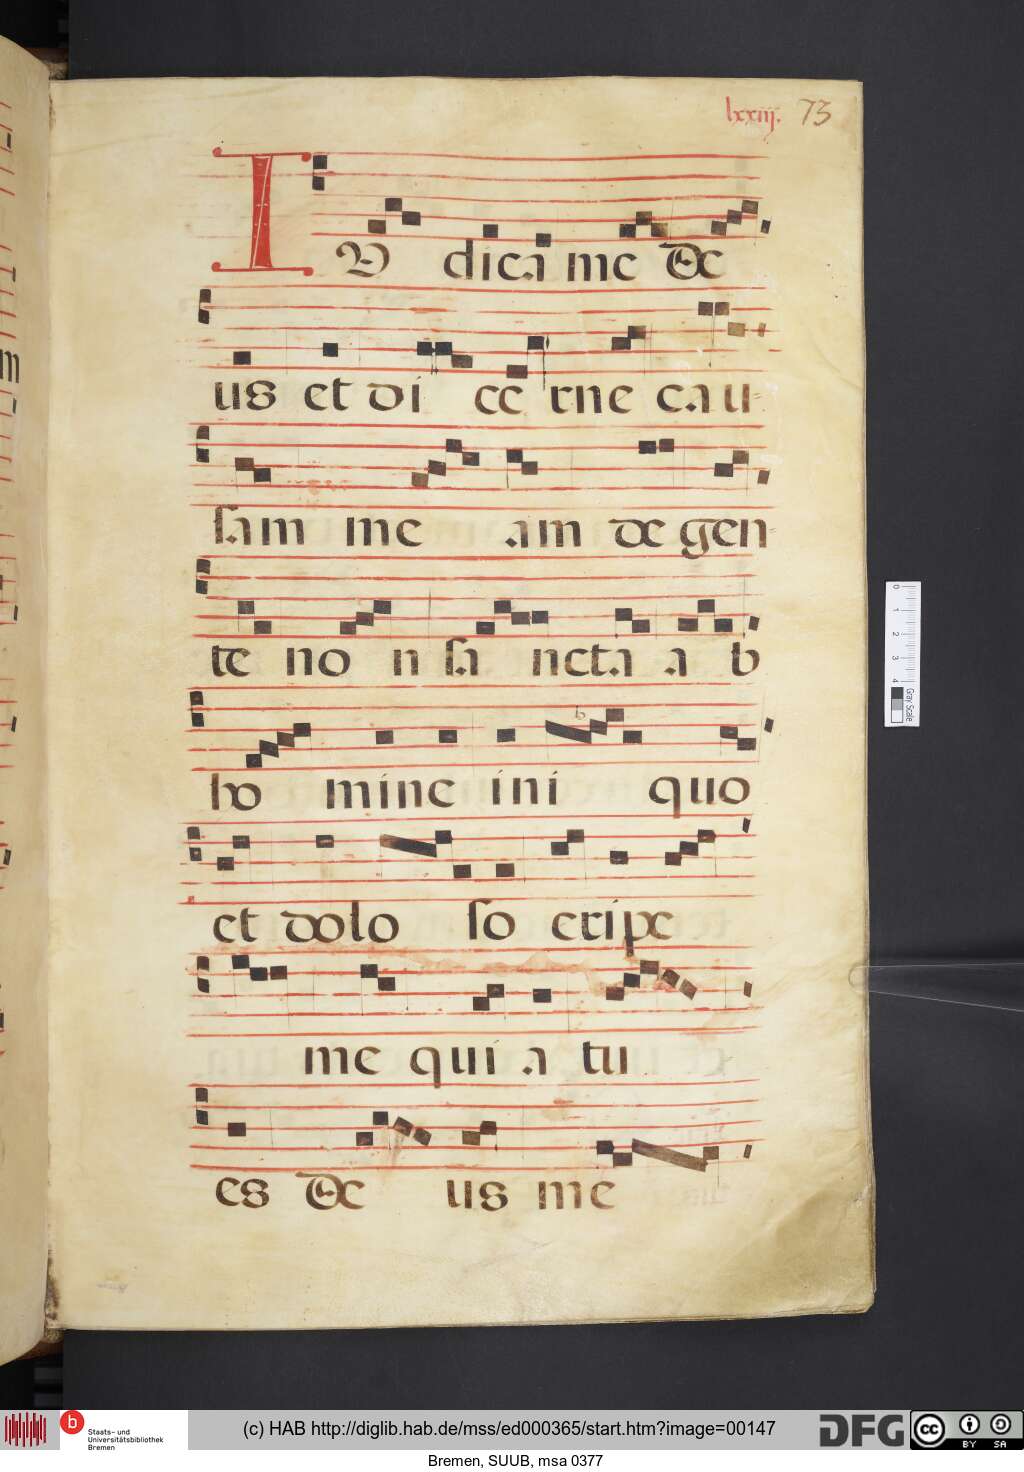 lxxiij. 73
IU dica me De
us et di ce rne cau
sam me am de gen
te no n sa ncta a b
ho mine ini quo
et dolo so eripe
me qui a tu
es De us me
b
0 1 2 3 4
Gray Scale
b Staats- und
Universitätsbibliothek
Bremen
(c) HAB http://diglib.hab.de/mss/ed000365/start.htm?image=00147
DFG
cc BY SA
Bremen, SUUB, msa 0377